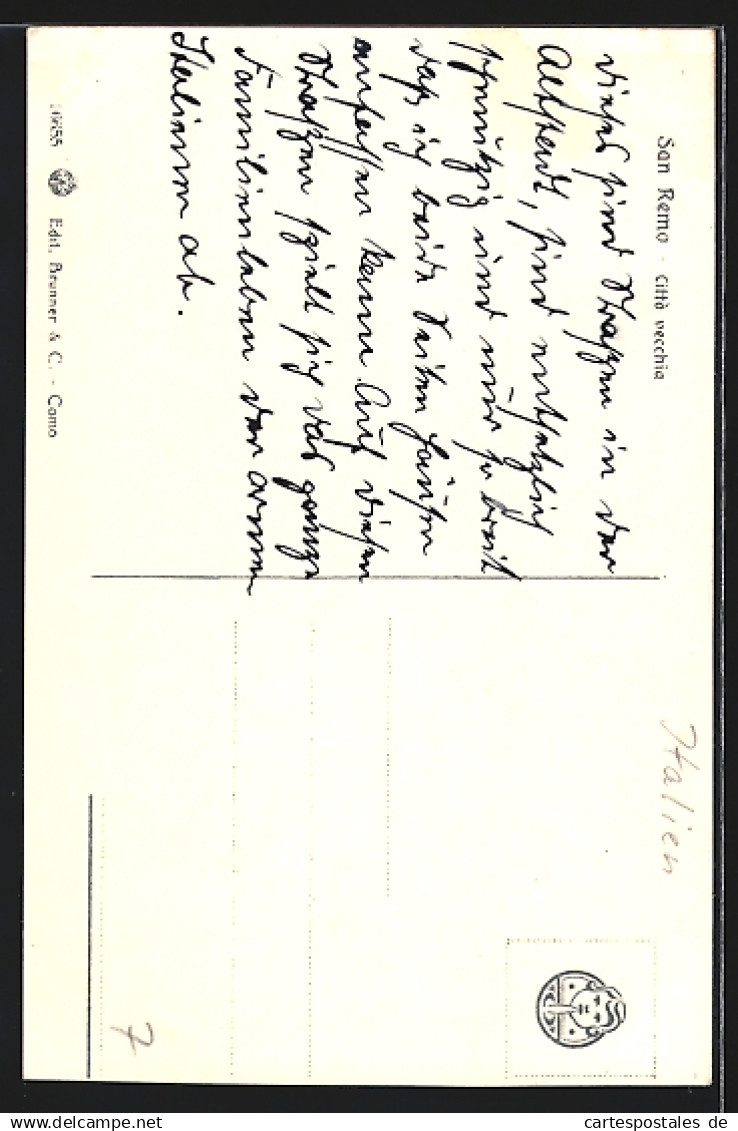 San Remo - città vecchia
Dieses sind Straßen in der
Altstadt, sind entsetzlich
schmutzig und nur so breit
daß ich beide Seiten Häuser
anfassen kann. Auf diesen
Straßen spielt sich das ganze
Familienleben der armen
Italiener ab.
Edit. Brunner & C. - Como
Italien
7
cartespostales de